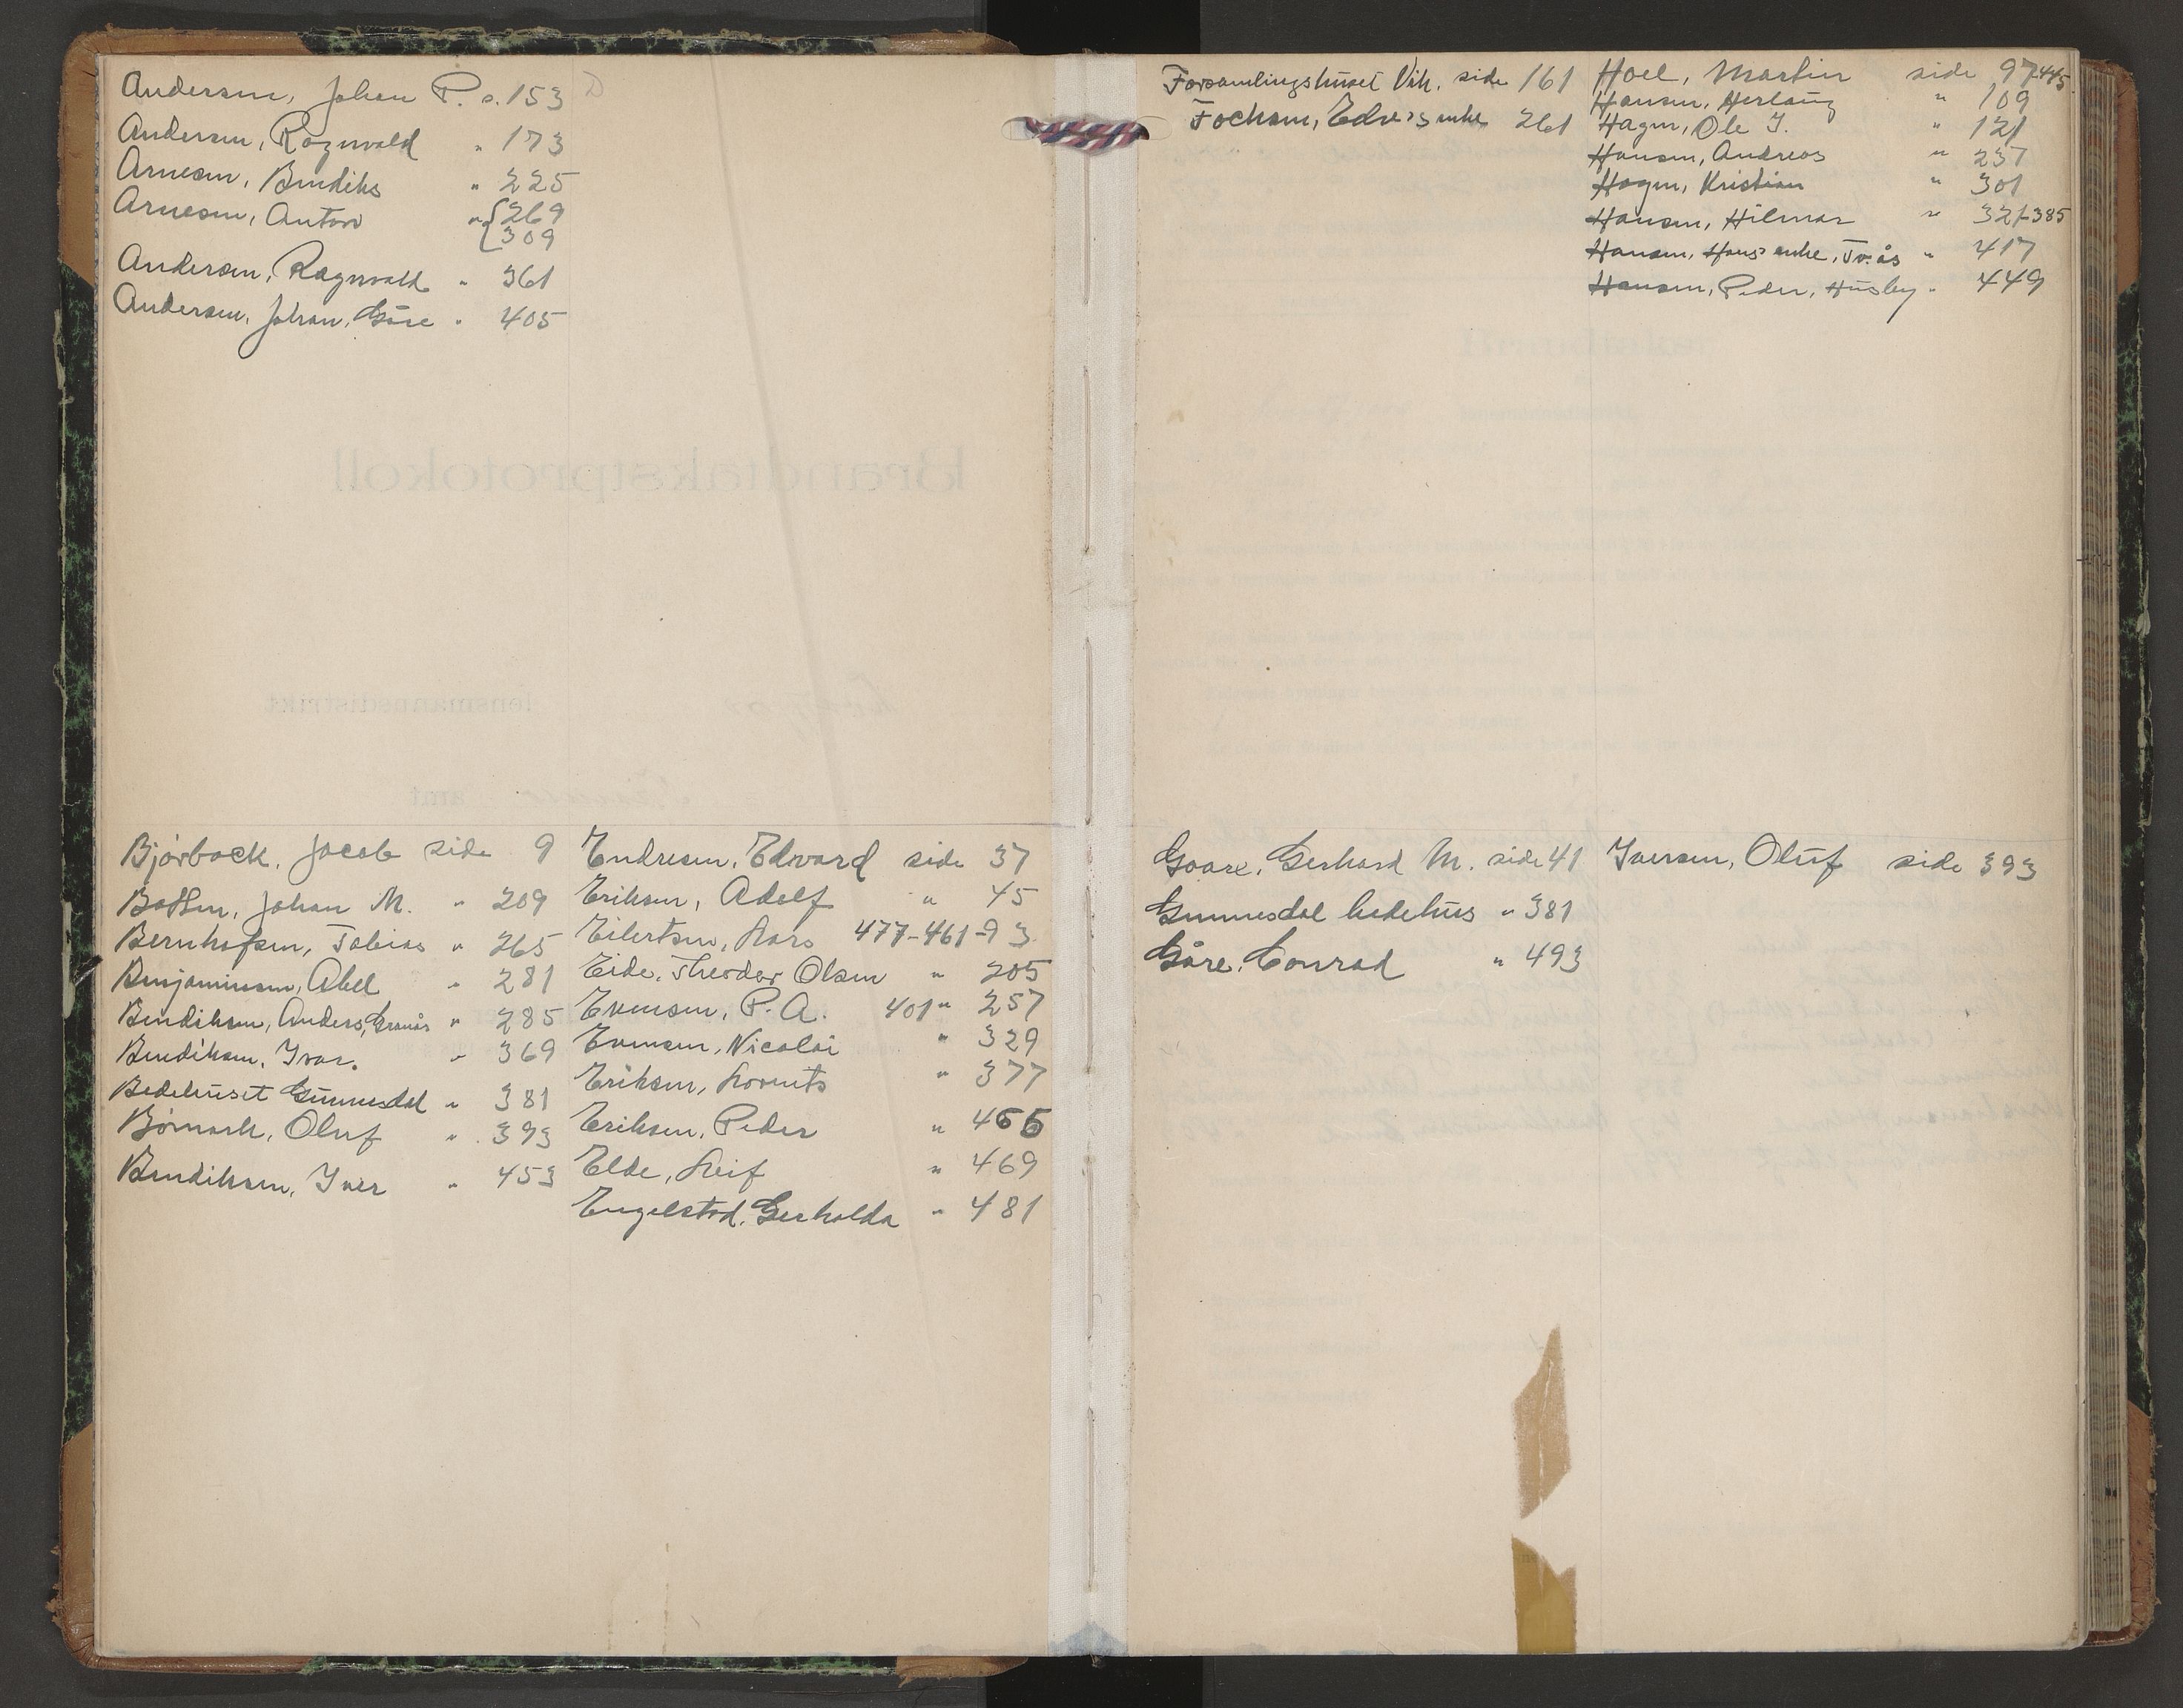 Andersen, Johan P. s. 153
Andersen, Ragnvald " 173
Arnesen, Bendiks " 225
Arnesen, Anton " { 269
309
Andersen, Ragnvald " 361
Andersen, Johan, Gåre " 405
Bjørbæck, Jacob side 9
Johan M. " 209
Bernhofsen, Tobias " 265
Benjaminsen, Abel " 281
Bendiksen, Anders, Granås " 285
Bendiksen, Ivar. " 369
Bedehuset Gunnesdal " 381
Bjørnark, Oluf " 393
Bendiksen, Iver " 453
Endresen, Edvard side 37
Eriksen, Adolf " 45
Eilertsen, Lars 477-461-93
Eide, Theodor Olsen " 205
Evensen, P. A. 401 " 257
Evensen, Nicolai " 329
Eriksen, Lorents " 377
Eriksen, Peder "
Elde, Leif " 469
Engelstad, Gerhalda " 481
Forsamlingshuset Vik. side 161
Fochsen, Edv's enke 261
Hoel, Martin side 97-445
Hansen, Herlaug " 109
Hagen, Ole J. " 121
Hansen, Andreas " 237
Hagen, Kristian " 301
Hansen, Hilmar " 321-385
Hansen, Hans' enke, Tv.ås " 417
Hansen, Peder, Husby " 449
Goare, Gerhard M. side 41
Gunnesdal bedehus " 381
Gåre, Conrad " 493
Iversen, Oluf side 393